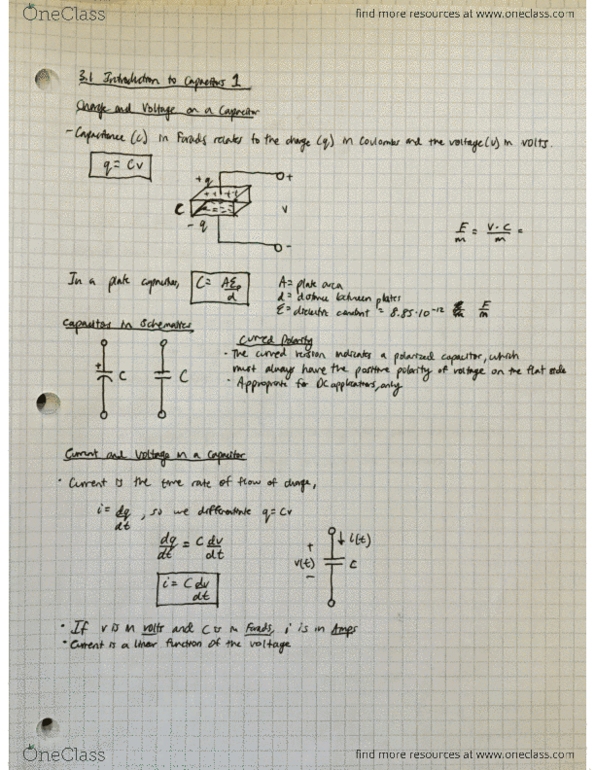 OneClass
find more resources at www.oneclass.com
3.1 Introduction to Capacitors 1
Charge and Voltage on a Capacitor
- Capacitance (C) in Farads relates to the charge (q) in Coulombs and the voltage (v) in volts.
q = Cv
+q
+ + + +
C
- - - -
- q
+
v
-
F/m = V·C/m =
In a plate capacitor, C = Aε/d
A = plate area
d = distance between plates
ε = dielectric constant = 8.85·10^-12 F/m
Capacitors in Schematics
+ C
C
Curved Polarity
· The curved version indicates a polarized capacitor, which
must always have the positive polarity of voltage on the flat side
· Appropriate for DC applications, only
Current and Voltage in a Capacitor
· Current is the time rate of flow of charge,
i = dq/dt, so we differentiate q = Cv
dq/dt = C dv/dt
i = C dv/dt
+
v(t)
-
i(t)
C
· If v is in volts and C is in Farads, i is in Amps
· Current is a linear function of the voltage
OneClass
find more resources at www.oneclass.com